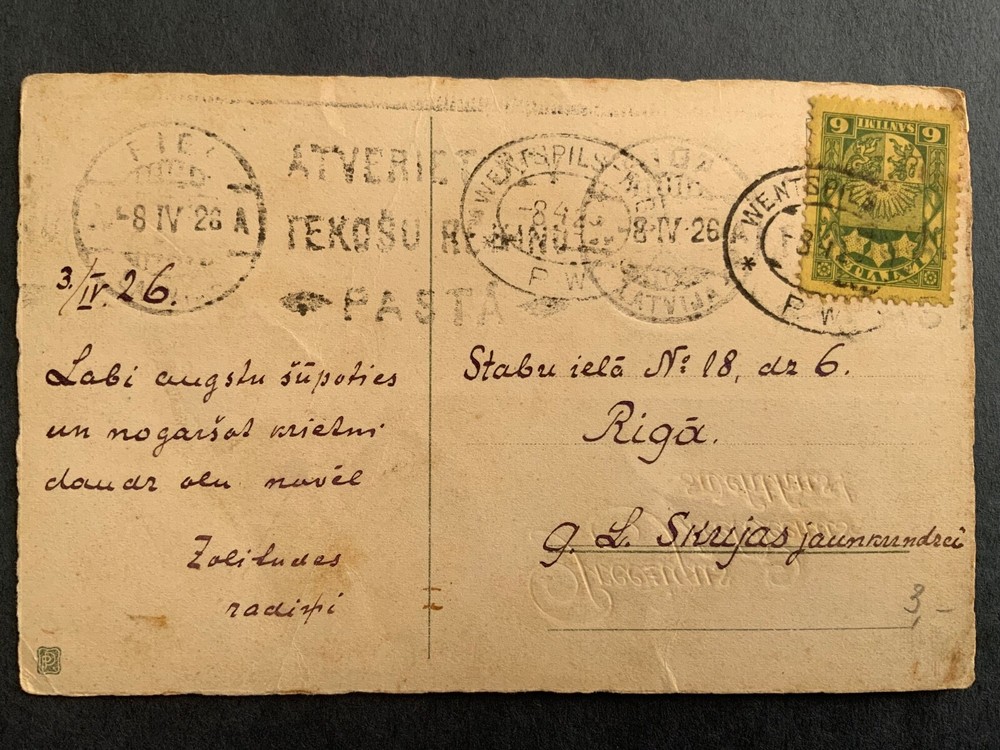 -8 IV 26 A
ATVERIET
TEKOŠU
PASTĀ
WENTSPILS
P W
-8 IV 26
LATVIJA
WENTSPILS
P W
6 SANTIMI 6
LATVIJA
3./IV. 26.
Labi augstu šūpoties
un nogaršot krietni
daudz olu novēl
Zolitudes
radiņi
Stabu ielā № 18, dz 6.
Rīgā.
g. L. Skujas jaunkundzei
3-